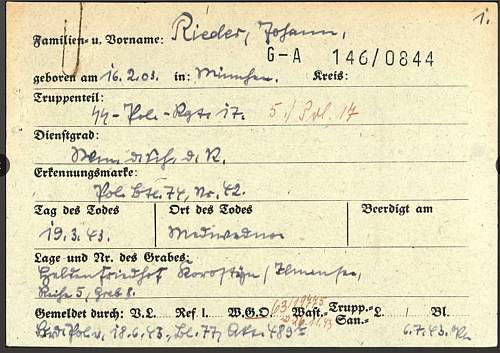 1.
Familien- u. Vorname: Rieder, Johann,
G-A 146/0844
geboren am 16.2.03. in: München. Kreis:
Truppenteil:
SS-Pol.-Rgt. 17. 5./Pol. 17
Dienstgrad:
d. R.
Erkennungsmarke:
Pol. Btl. 74, Nr. 42.
Tag des Todes Ort des Todes Beerdigt am
19.3.43. Medwednoe
Lage und Nr. des Grabes:
Heldenfriedhof Korostyn / Ilmensee,
Reihe 5, Grab 8.
Gemeldet durch: V.L. Ref l. W.G.O. Wast.- Trupp.- San.- L. / Bl.
18.6.43, Bl. 77, 6.7.43.